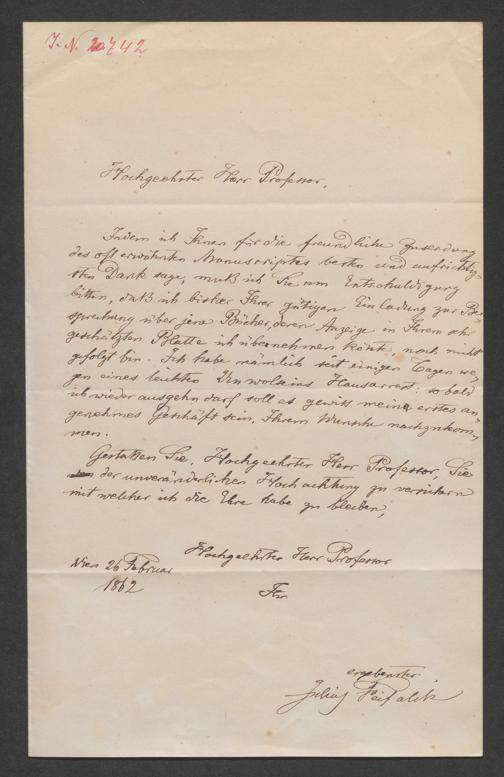 J. N. 20742
Hochgeehrter Herr Professor,
Indem ich Ihnen für die freundliche Zusendung
des oft erwähnten Manuscriptes besten und aufrichtig-
sten Dank sage, muß ich Sie um Entschuldigung
bitten, daß ich bisher Ihrer gütigen Einladung zur Be-
sprechung über jene Bücher, deren Anzeige in Ihrem sehr
geschätzten Blatte ich übernehmen könte, noch nicht
gefolgt bin. Ich habe nämlich seit einigen Tagen we-
gen eines leichten Unwolseins Hausarrest: so bald
ich wieder ausgehn darf soll es gewiß meine erstes an-
genehmes Geschäft sein, Ihrem Wunsche nachzukom-
men.
Gestatten Sie, Hochgeehrter Herr Professor, Sie
der unveränderlichen Hochachtung zu versichern
mit welcher ich die Ehre habe zu bleiben,
Hochgeehrter Herr Professor
Wien 26 Februar
1862
Ihr
ergebenster
Julius Feifalik